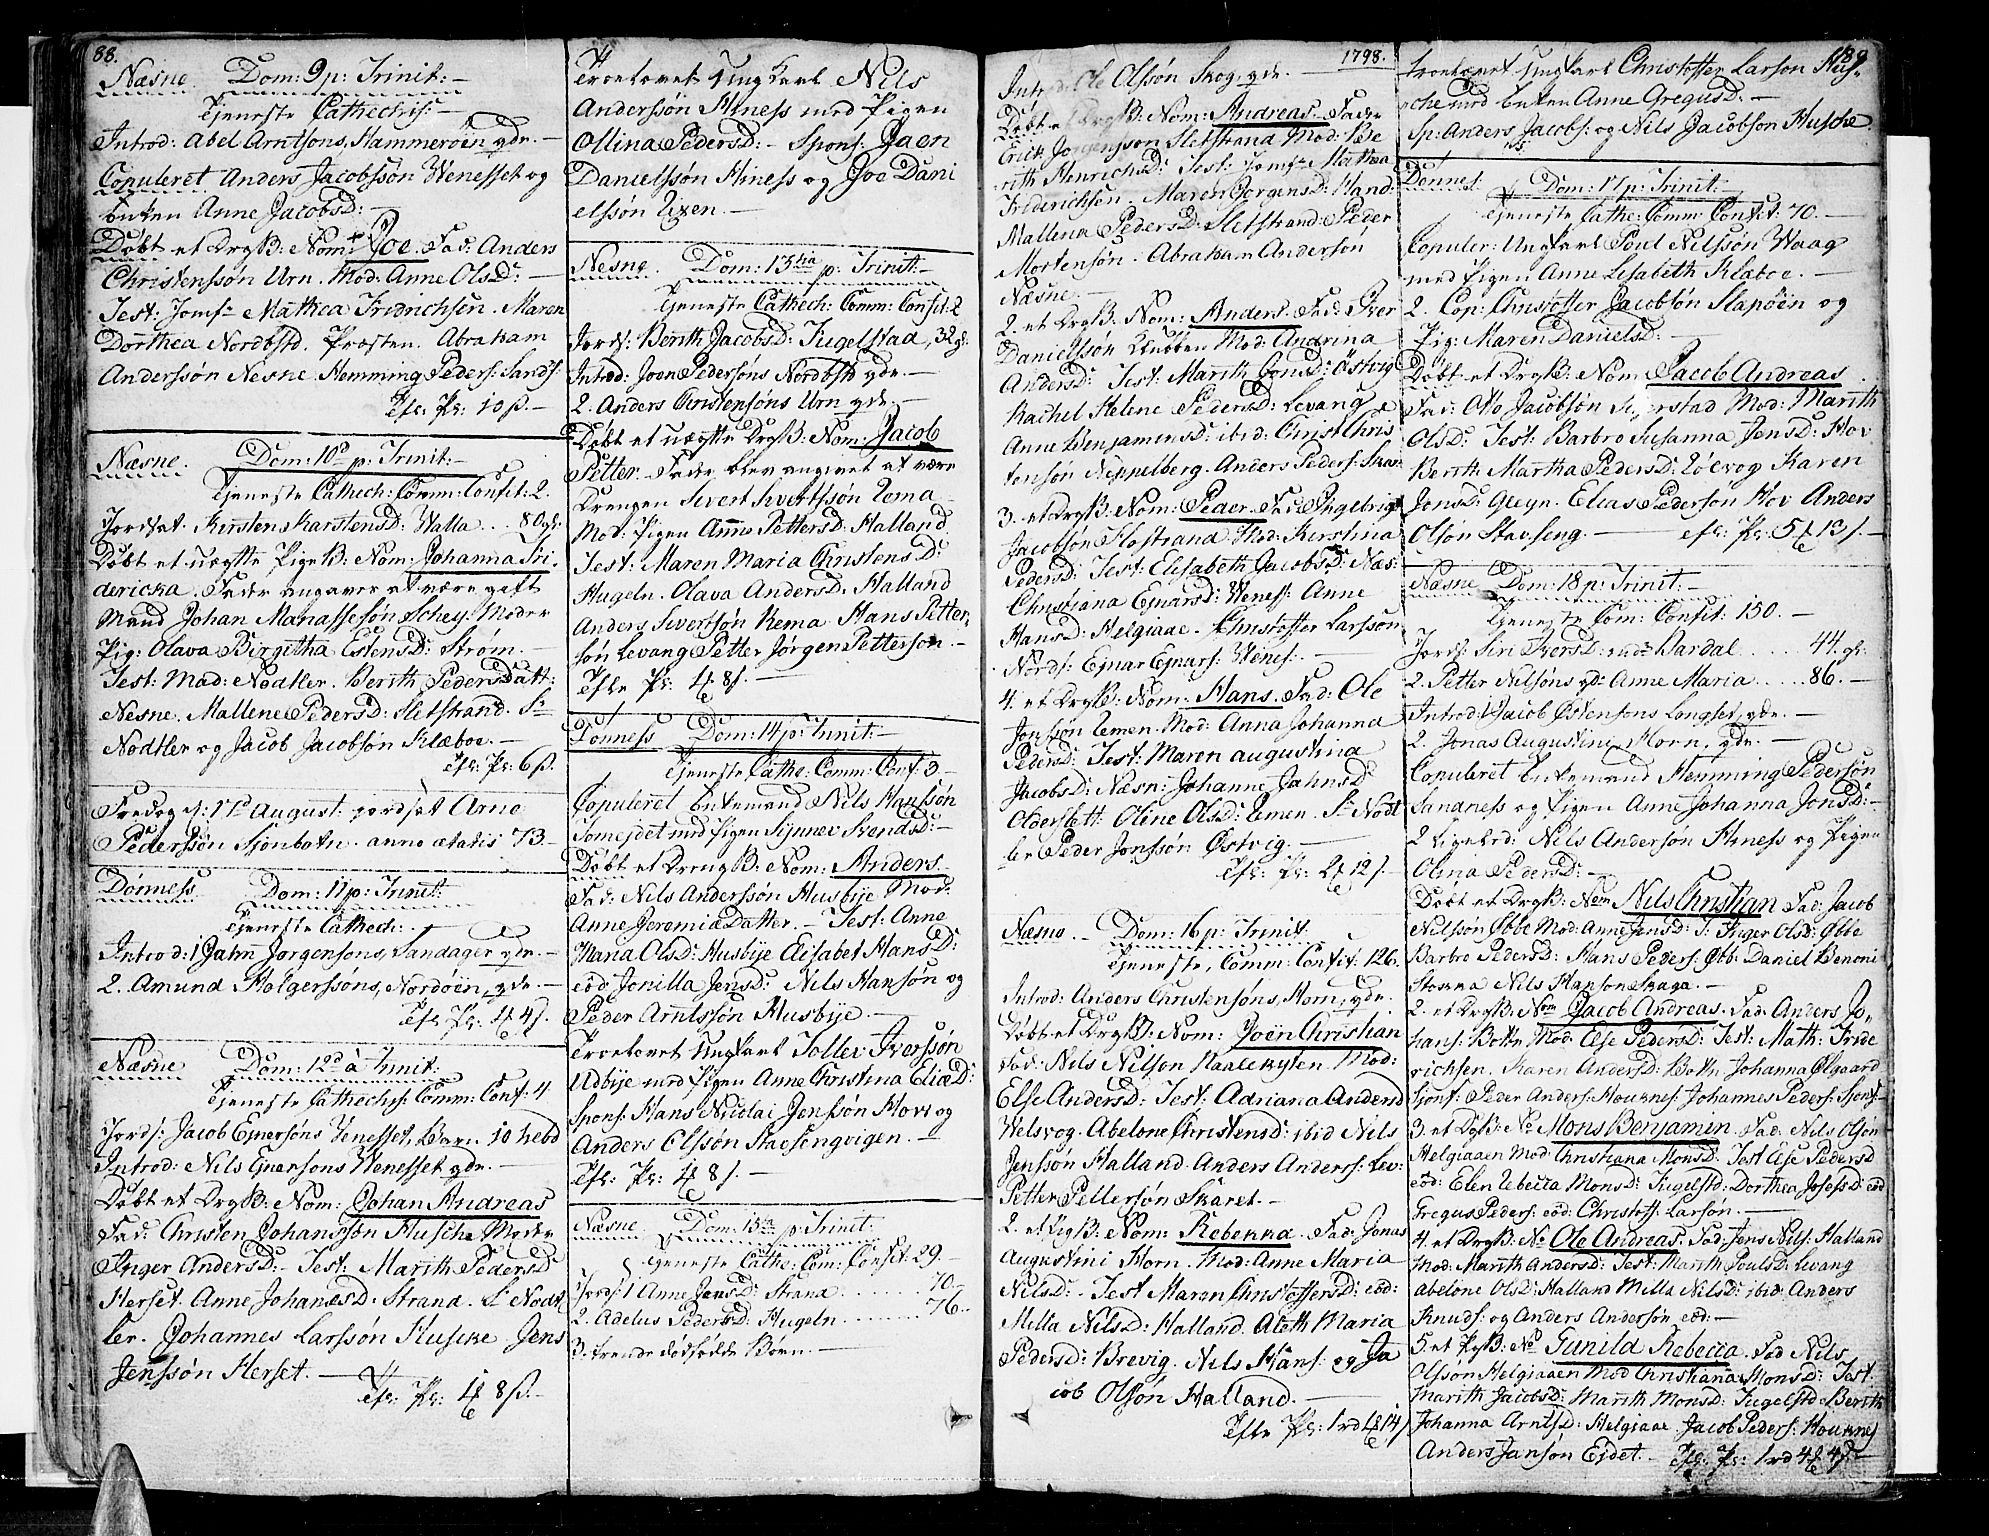 88.
Næsne Dom: 9 p: Trinit: –
Tjeneste Cathechis: –
Introd: Abel Arntsons, Hammerøen qde. –
Copuleret Anders Jacobssøn Wenesset og
Enken Anne Jacobsd: –
Døbt et DrgB: Nom: Joe. Fad: Anders
Christenssøn Urn. Mod: Anne Olsd: –
Test: Jomf: Mathea Fridrichsen. Maren
Dorthea Nordbstd. Præsten. Abraham
Anderssøn Nesne. Hemming Peders: Sands:
Efr: Pr: 10 ß. –
Næsne. Dom: 10d p: Trinit: –
Tjeneste Cathech: Comm: Confit: 2.
Jordfæt. Kirsten Karstensd: Walla .. 80 gl:
Døbt et uægte PigeB: Nom: Johanna Fri
dericka. Fader angaves at være gift
Mand Johan Manassesøn Schey. Moder
Pig: Olava Birgitha Estensd: Strøm. –
Test: Mad: Nodtler. Berith Pedersdatt:
Nesne. Mallene Pedersd: Sletstrand. Sr
Nodtler og Jacob Jacobsøn Klæboe. –
Efr: Pr: 6 ß. –
Fredag d: 17d August. jordfæt Arne
Pederssøn Sjonbotn. anno ætatis 73. –
Dønness Dom: 11 p: Trinit:
Tjeneste Cathech: –
Introd: 1 Jahn Jørgensons, Sandager qde. –
2. Amund Holgerssøns, Nordøen, qde. –
Efr: Pr: 4 ß. –
Næsne Dom: 12d à Trinit:
Tjeneste Cathechs: Comm: Conf: 4
Jords: Jacob Ejnersøns Venesset, Barn 10 hebd
Introd: Nils Ejnersons Wenesset qde. –
Døbt et DrgB: Nom: Johan Andreas
Fad: Christen Johanssøn Husche Moder
Inger Andersd: – Test: Marith Pedersd
Herset. Anne Johanesd. Strand. Sr Nodt
ler. Johannes Larssøn Huscke. Jens
Jenssøn Herset. –
Efr: Pr: 1 8 ß. –
Troelovet Ung Karl Nils
Anderssøn Hness med Pigen
Ollina Pedersd: – Spons: Jaen
Danielssøn Hness og Joe Dani
elssøn Zixen. –
Nesne. Dom: 13tia p: Trinit: –
Tjeneste Cathech: Comm: Confit: 2
Jords: Berith Jacobsd: Fugelstad, 32 gl:
Introd: Joen Pedersøns Nordbstd qde. –
2. Anders Christensøns Urn qde. –
Døbt et uægte DrgB: Nom: Jacob
Petter. Fader blev angivet at være
Drengen Sivert Sivertssøn Zema
Mod: Pigen Anne Pettersd: Halland
Test: Maren Maria Christensd:
Hugeln. Olava Andersd: Halland
Anders Sivertsøn Rema. Hans Petter
søn Levang Petter Jørgen Petterson. –
Efr Pr: 8 ß. –
Dønness Dom: 14 p: Trinit: –
Tjeneste Cathe: Comm: Conf: 3 –
Copuleret Enkemand Nils Hanssøn
Somejdet med Pigen Sijnnev Svendsd: –
Døbt et DrengB: Nom: Anders.
Fad: Nils Anderssøn Husbije Mod:
Anne JeremiæDatter. – Test: Anne
Maria Olsd: Husbije Elisabet Hansd:
eod Jonilla Jensd: Nils Hansøn og
Peder Arntssøn Husbije. –
Troelovet Ungkarl Tollev Iverssøn
Udbije med Pigen Anne Christina Eliæd:
Spons: Hans Nicolai Jenssøn Hov og
Anders Olssøn Stavsengvigen. –
Efr: Pr: 8 ß. –
Næsne. Dom: 15ta p: Trinit:
Tjeneste Cathe: Com: Confit: 29. –
Jords: 1 Anne Jensd: Strand ....... 70 –
2. Adelus Pedersd: Hugeln ....... 76 –
3. trende dødfødde Børn. –
1798.
Introd: Ole Olssøn Skog, qde. –
Døbt et DrgB: Nom: Andreas. Fader
Erick Jørgengson Sletstrand Mod: Be
rith Henrichsd: Test: Jomf: Mathea
Friderichsen. Maren Jørgensd: Hand:
Mallena Pedersd: Sletstrand. Peder
Mortensøn. Abraham Andersøn
Næsne. –
2. et DrgB: Nom: Anders. Fad: Iver
Danielssøn Knubben Mod: Andrina
Andersd: Test: Marith Jonsd: Østvig
Rachel Helene Pedersd: Levang
Anne Benjaminsd: ibid: Christ Chris
tensøn Neppelberg. Anders Peders: Skar
3. et DrgB: Nom: Peder. Fad: Ingebrigt
Jacobson Flostrand Mod: Kirstina
Pedersd: Test: Elisabeth Jacobsd: Næs:
Christiana Ejnarsd: Wenes: Anne
Hansd: Helgiaae. Christoffer Larssøn
Nords: Ejnar Ejnars: Wenes: –
4. et DrgB: Nom: Hans. Fad: Ole
Jonssøn Zemen. Mod: Anna Johanna
Pedersd: Test: Maren Augustina
Jacobsd: Næsn: Johanne Jahnsd:
Olderslett: Oline Olsd: Zemen. Sr Nodt
ler Peder Jonssøn Østvig. –
Efr: Pr: 2 12 ß. –
Næsne. – Dom: 16 p: Trinit
Tjeneste, Comm: Confit: 126. –
Introd: Anders Christensøns, Hom, qde.
Døbt et DrgB: Nom: Joen Christian
Fad: Nils Nilson Naalekyten. Mod:
Else Andersd: Test: Adriana Andersd
Welsvog. Abelone Christensd: ibid Nils
Jenssøn Halland. Anders Anders: Lev:
Petter Pettersøn Skaret. –
2. et PigB: Nom: Rebekka. Fad: Jonas
Augustini Horn. Mod: Anne Maria
Nilsd: – Test Maren Christoffersd: eod:
Milla Nilsd: Halland. Aleth Maria
Pedersd: Brevig. Nils Hans: og Ja
cob Olssøn Halland. –
Efr Pr: 1 rd 14 ß
189
Troelovet Ungkarl Christoffer Larson Hus
che med Enken Anne Gregusd: –
Sp: Anders Jacobs: og Nils Jacobson Husche
Dønnes. Dom: 17 p: Trinit: –
Tjeneste Cathe: Comm: Confit: 70. –
Copuler: Ungkarl Poul Nilssøn Waag
med Pigen Anne Lisabeth Klæboe. –
2. Cop: Christoffer Jacobsøn Slapøen og
Pig: Maren Danielsd: –
Døbt et DrgB: Nom: Jacob Andreas
Fad: Otto Jacobsøn Mod: Marith
Olsd: Test: Barbro Susanna Jensd: Hov
Berith Martha Pedersd: Karen
Jonsd: Gleyn. Elias Pederson Hov Anders
Olsøn Stavseng. – Efr: Pr: 5 13 ß. –
Næsne Dom: 18 p: Trinit: –
Tjeneste Com: Confit: 150. –
Jords: Siri Iversd: Dardal ..... 44. gl:
2. Petter Nilsøns qd: Anne Maria ..... 86. –
Introd: 1 Jacob Østensons Langset, qde. –
2. Jonas Augustini Horn, qde. –
Copuleret Enkemand Hemming Pedersøn
Sandness og Pigen Anne Johanna Jonsd: –
2 ligeled: Nils Andersøn Hness og Pigen
Olina Pedersd: –
Døbt et DrgB: Nom Nils Christian Fad: Jacob
Nilssøn Øbbe Mod: Anne Jensd: T: Inger Olsd: Øbbe
Barbro Pedersd: Hans Peders: Øbb: Daniel Benoni
Stokka Nils Hanson Skaga. –
2. et DrgB: Nom Jacob Andreas. Fad: Anders Jo
hans: Botn Mod: Else Pedersd: Test: Math: Fride
richsen. Karen Andersd: Botn Johanna Ølgaard
Sjons: Peder Anders: Houknes: Johannes Peders: Sjons:
3. et DrgB: No Mons Benjamin. Fad: Nils Olsøn
Helgiaaen Mod: Christiana Monsd: Test Else Pedersd
eod: Elen Rebecca Monsd: Fugelstd: Dorthea Josefsd: eod
Gregus Peders: eod: Christoff: Larson. –
4. et DrgB: No Ole Andreas. Fad: Jens Nils: Halland
Mod: Marith Andersd: Test: Marith Poulsd: Levang
Abelone Olsd: Halland Milla Nilsd: ibid: Anders
Knuds: og Anders Andersøn, eod: –
5. et PgB: No Gunild Rebecca. Fad Nils
Olssøn Helgiaaen Mod Christiana Monsd: Test:
Marith Jacobsd: Marith Monsd: Fugelstd: Berith
Johanna Arntsd: Helgiaae. Jacob Peders: Houknes
Anders Jansøn Eidet. – Efr: Pr: 1 rd 4 4 ß –